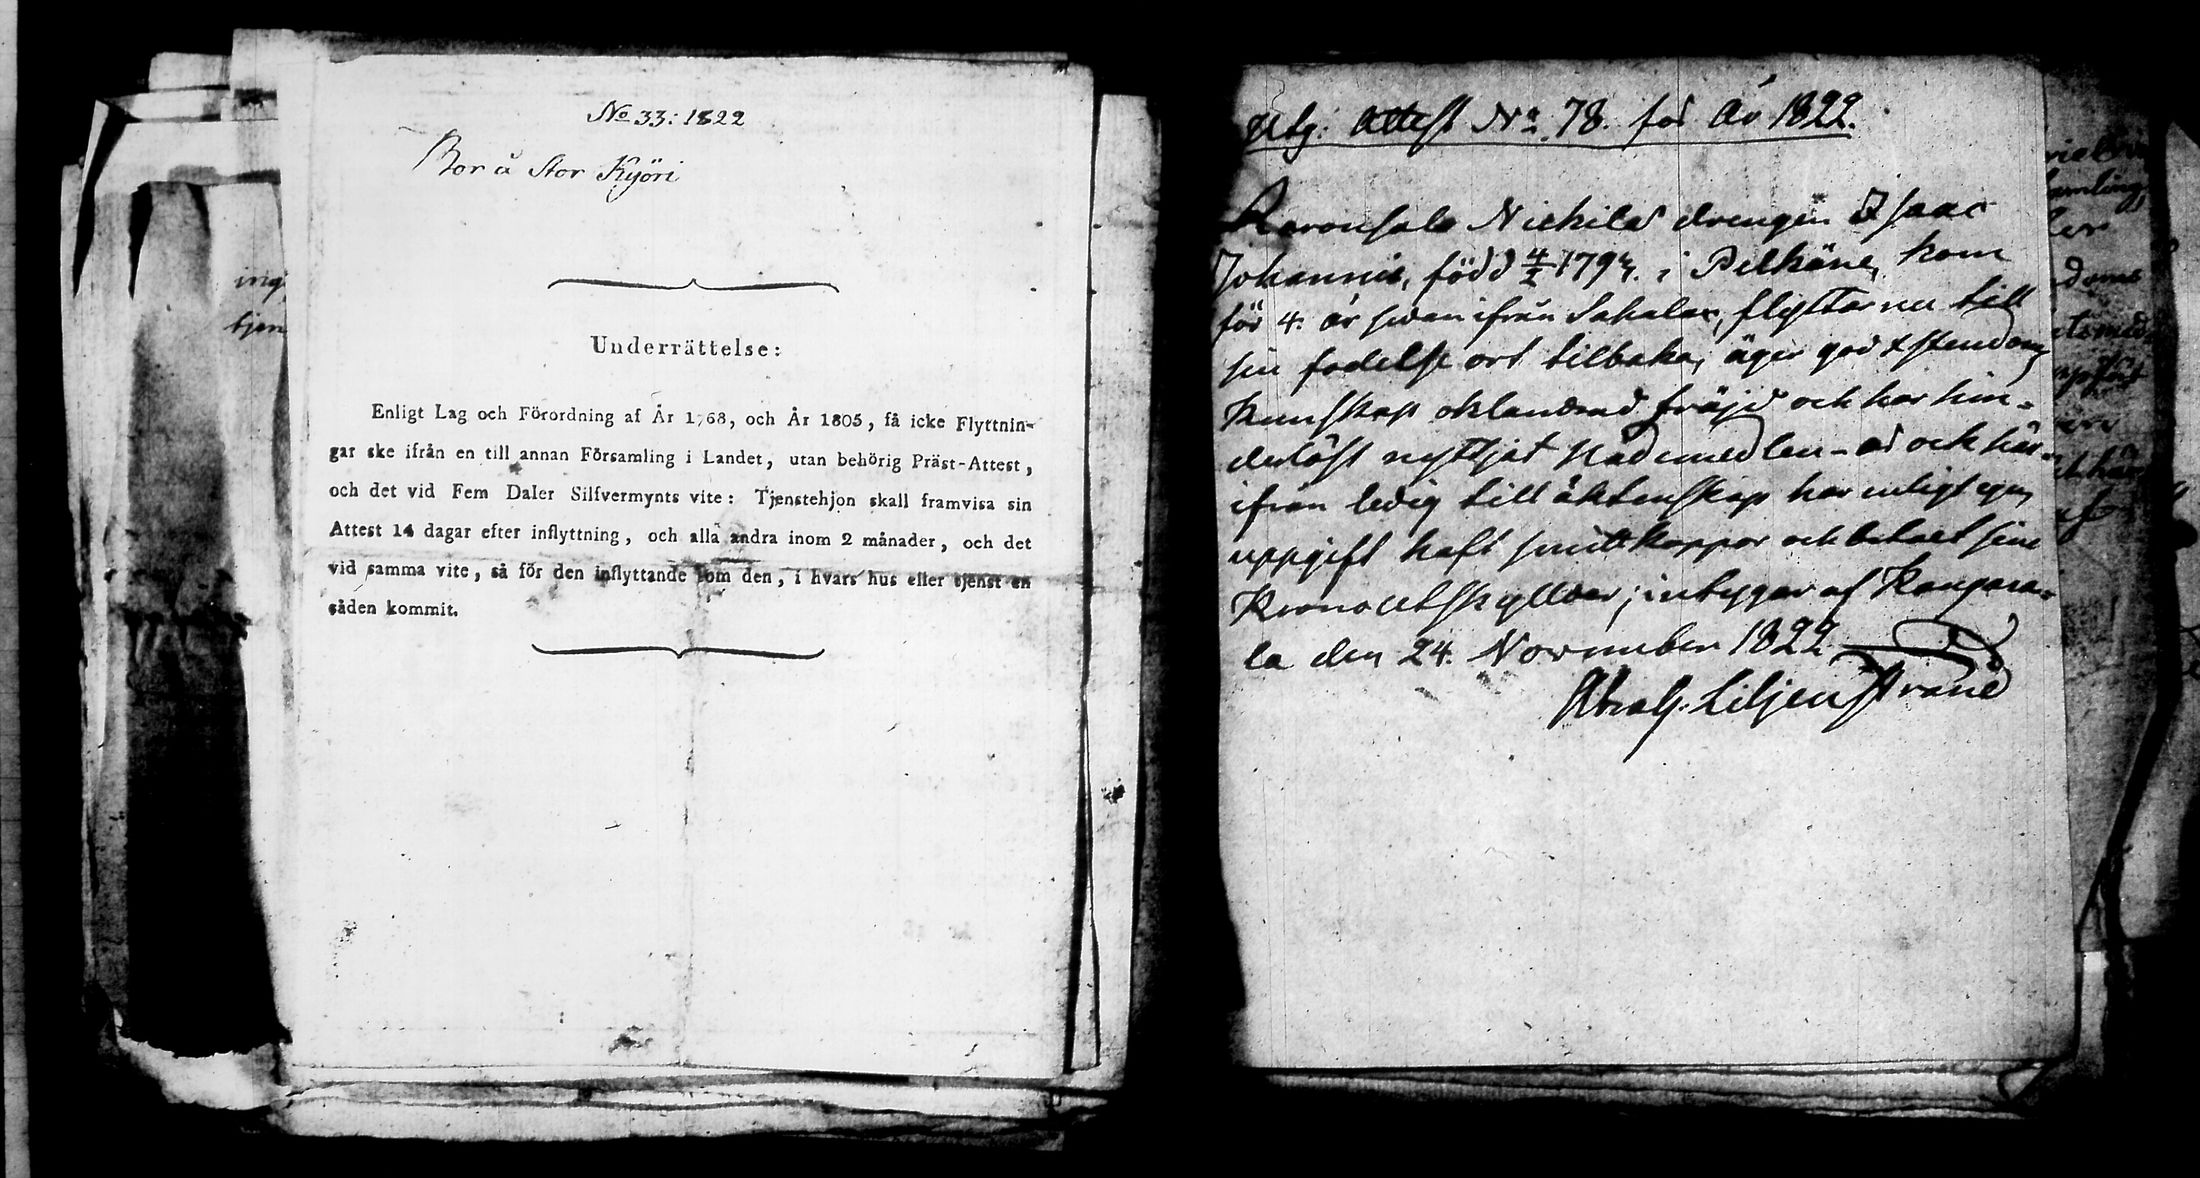 No 33: 1822
Bor å Stor Kyöri
Underrättelse:
Enligt Lag och Förordning af År 1768, och År 1805, få icke Flyttnin-
gar ske ifrån en till annan Församling i Landet, utan behörig Präst-Attest,
och det vid Fem Daler Silfvermynts vite: Tjenstehjon skall framvisa sin
Attest 14 dagar efter inflyttning, och alla andra inom 2 månader, och det
vid samma vite, så för den inflyttande som den, i hvars hus eller tjenst en
såden kommit.
Utg. Attest No 78. för År 1822.
Nickilä drengen Isaac
Johannis, född 4/1 179 i Pelkäne, kom
för 4. år sedan ifrån Sahalax, flyttar nu till
sin fodelse ort tilbaka, äger god
Kunskap oklandrad fräjd och har hin-
derlöst nyttjat Nådemedlen - är och här-
ifrån ledig till äktenskap har enligt egen
uppgift haft smittkoppor och betalt sine
Krono utskyllder; intygar af Kangasa-
la den 24. November 1822
Abrah. Liljenstrand
ing
tjen